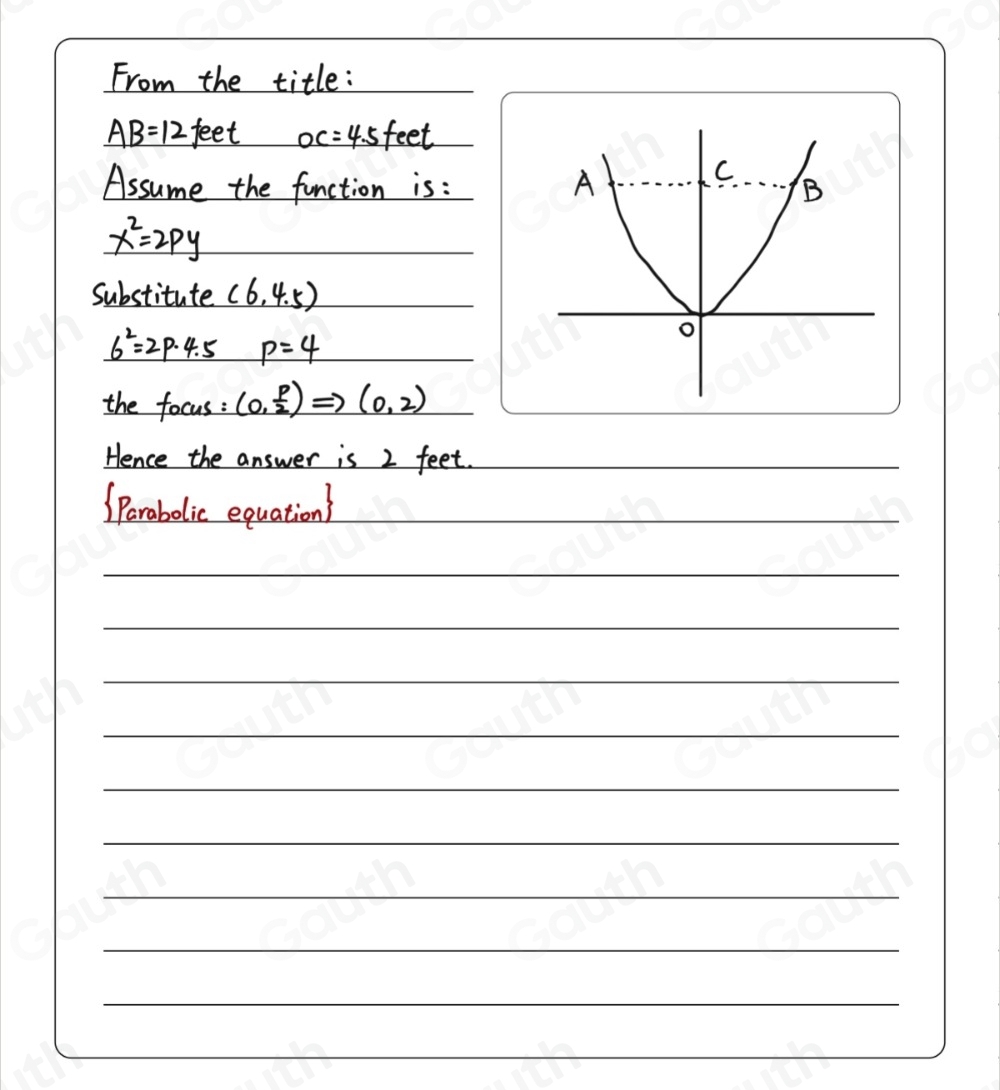 From the title:
AB=12 feet OC=4.5 feet
Assume the function is:
x²=2py
Substitute (6,4.5)
6²=2p·4.5 p=4
the focus: (0,p/2) ⇒ (0,2)
Hence the answer is 2 feet.
{Parabolic equation}
A C B
O
Gauth